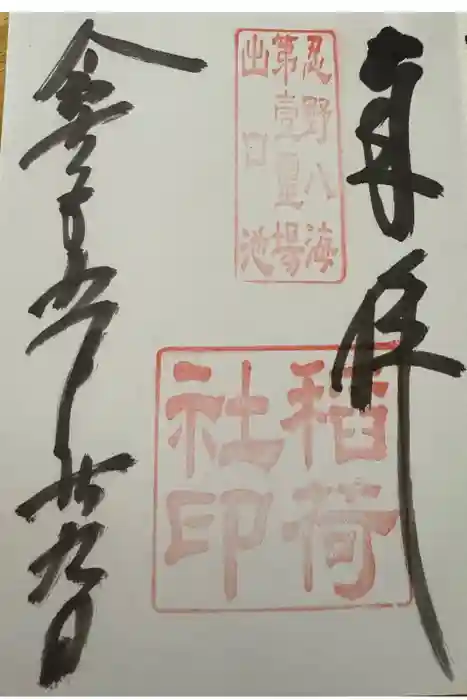 奉拝
忍野八海
第壹霊場
出口池
稲荷
社印
令和 廿九日